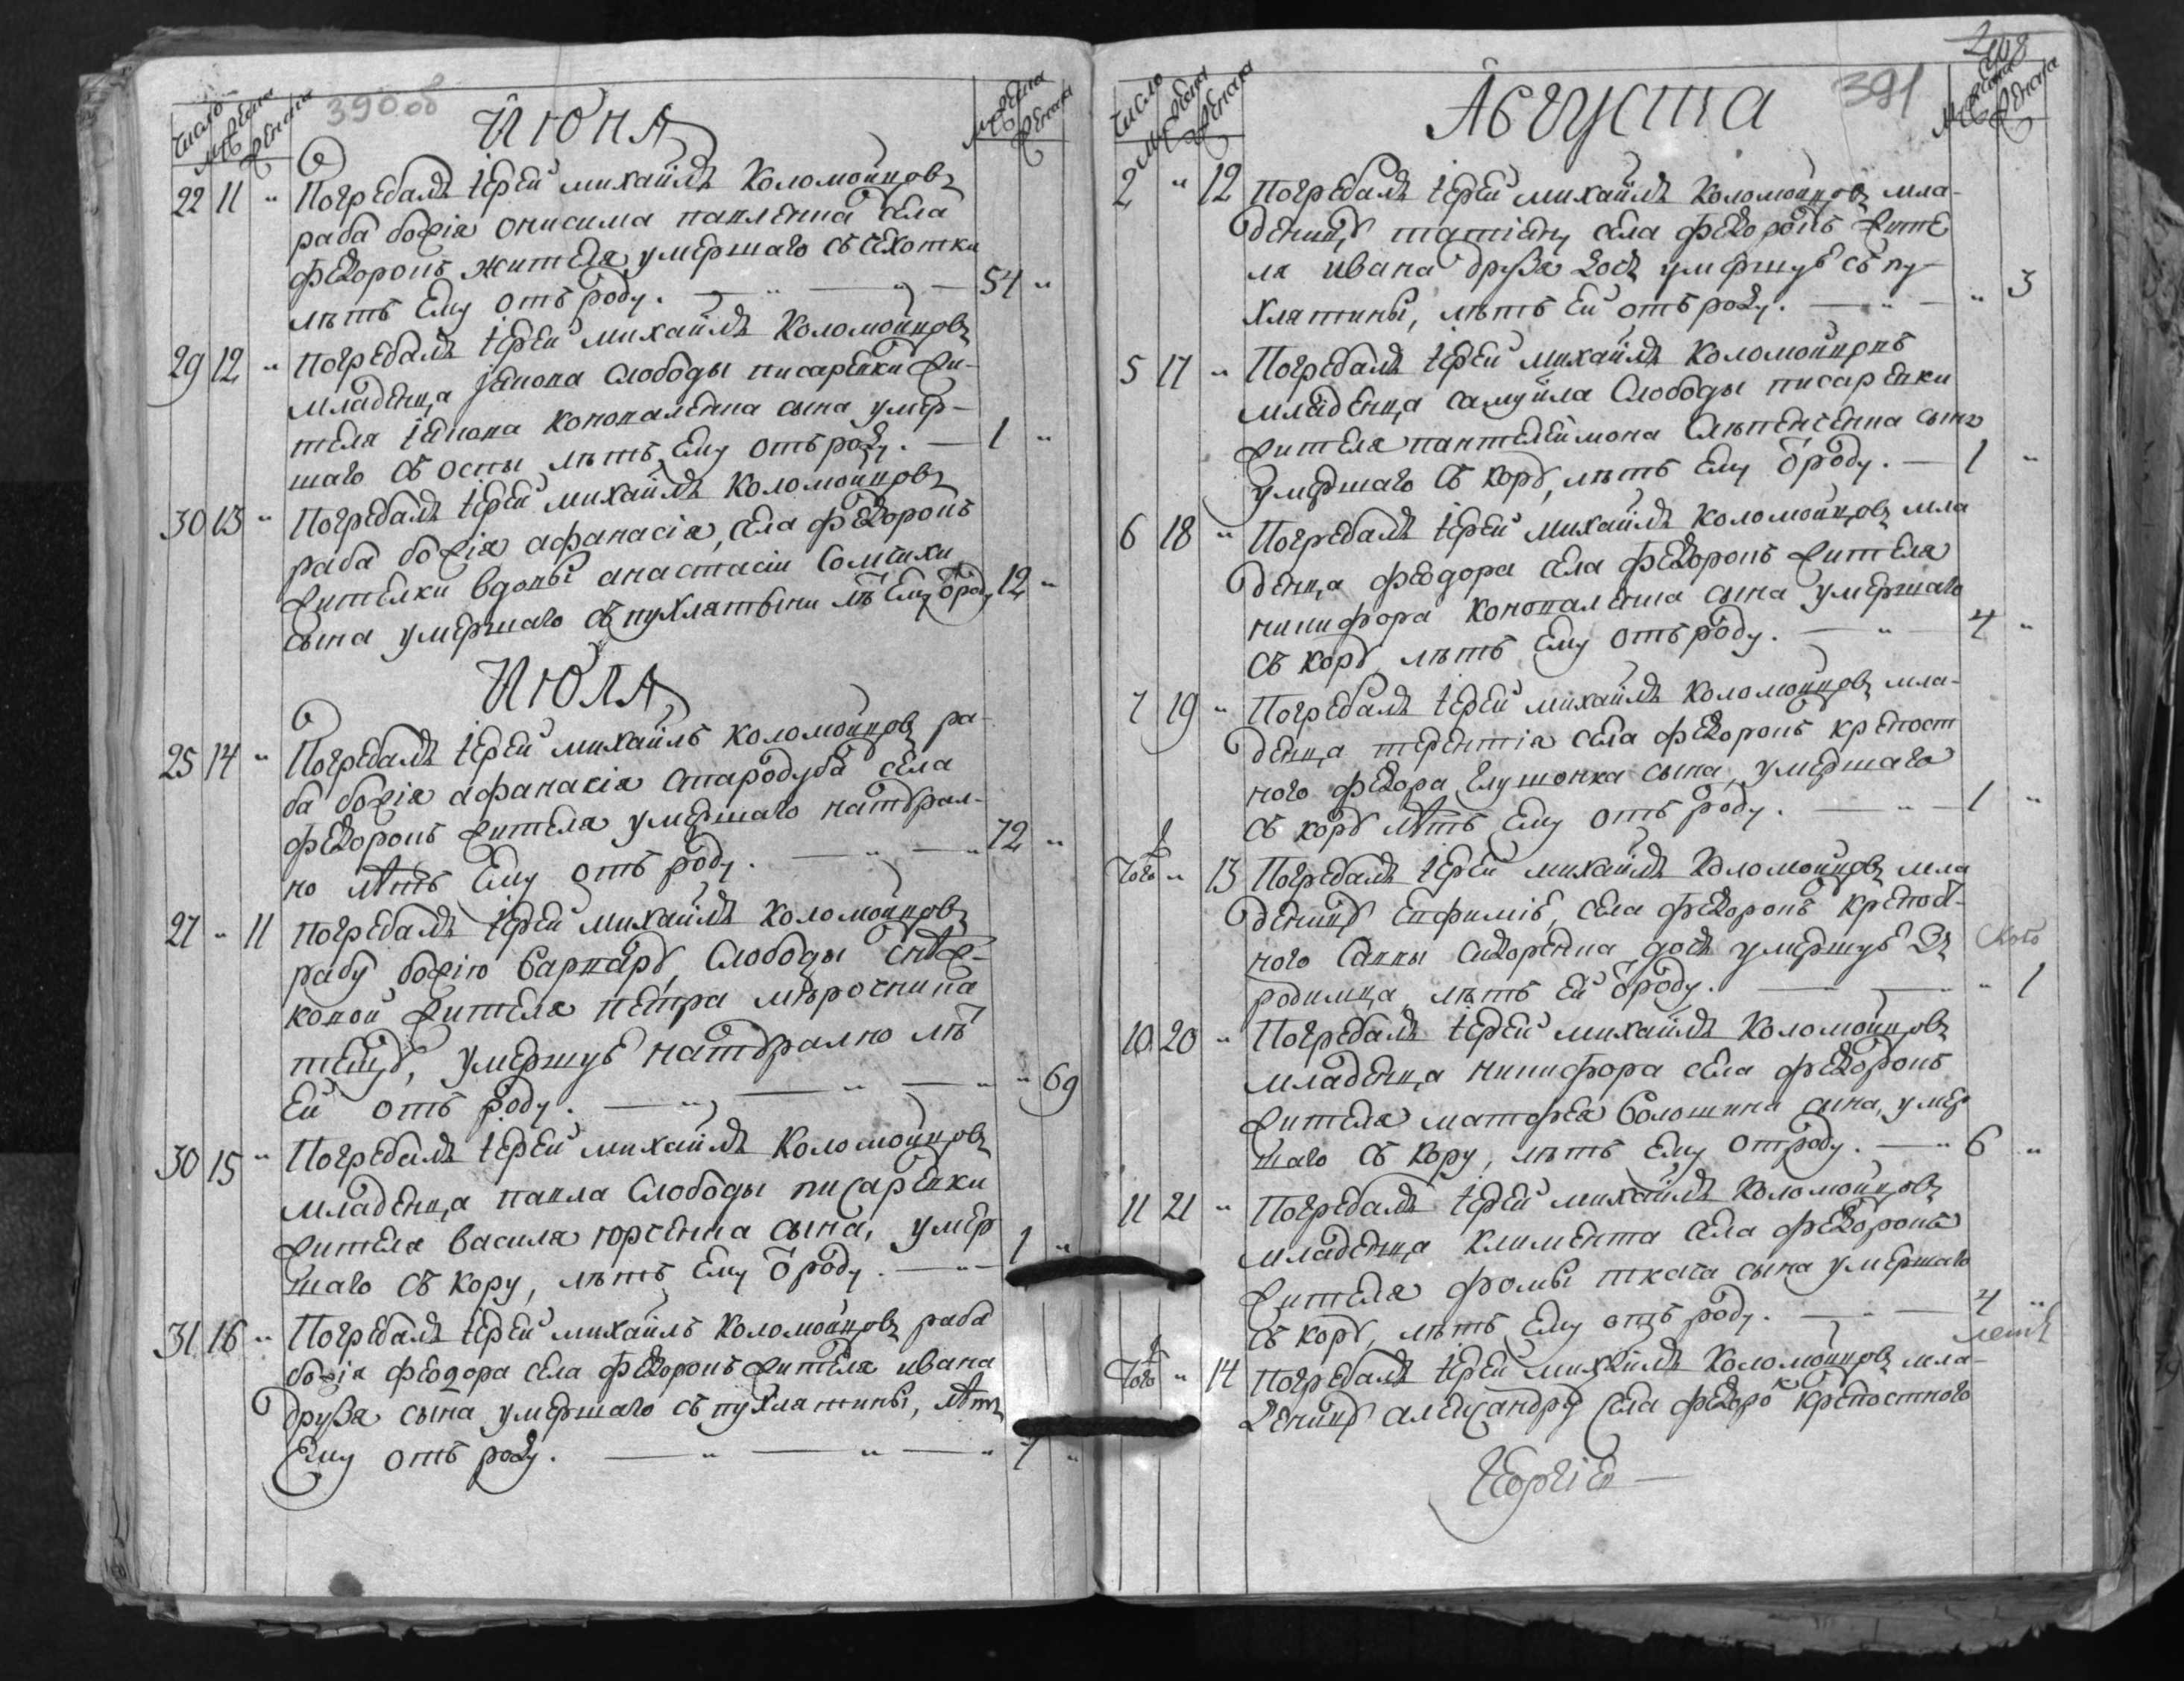 390 об
Число
Мужеска
Женска
ИЮНЯ
Мужеска
Женска
22 11 " Погребалъ іерей михаилъ Коломойцовъ
раба божія онисима павленка села
федоровъ жителя умершаго съ сехотки
лѣтъ Ему отъ роду. — " — " — 54 "
29 12 " Погребалъ іерей михаилъ Коломойцовъ
младенца Слободы писаревки жи-
теля коновалενка сына умер-
шаго съ оспы лѣтъ Ему отъ роду. — 1 "
30 13 " Погребалъ іерей михаилъ Коломойцовъ
раба божія афанасія, села федоровъ
жителки вдовы анастасіи
сына умершаго съ пухлятины лѣ Ему о роду 12 "
ИЮЛЯ
25 14 " Погребалъ іерей михаилъ коломойцовъ ра-
ба божія афанасія стародуба села
федоровъ жителя умершаго натурал-
но лѣтъ Ему отъ роду. — " — " 72 "
27 " 11 Погребалъ іерей михаилъ Коломойцовъ
рабу божію варвару, Слободы
ковой жителя петра мѣрочника
тещу, умершую натурално лѣ
Ей отъ роду. — " — " — " " 69
30 15 " Погребалъ іерей михаилъ Коломойцовъ
младенца павла Слободы писаревки
жителя василя юрченка сына, умер
шаго съ кору, лѣтъ Ему о роду. — " — 1 "
31 16 " Погребалъ іерей михаилъ Коломойцовъ раба
божія феодора села федоровъ жителя ивана
друзя сына умершаго съ пухлятины, лѣтъ
Ему отъ роду. — " — " — " 7 "
391
Число
Мужеска
Женска
Августа
Мужеска
Женска
2 " 12 Погребалъ іерей михаилъ Коломойцовъ мла-
деницу татіяну села федоровъ жите
ля ивана друзя дочь умершую съ пу-
хлятины, лѣтъ Ей отъ роду. — " — " 3
5 17 " Погребалъ іерей михаилъ Коломойцовъ
младенца самуила Слободы писаревки
жителя пантелеймона сына
умершаго съ кору, лѣтъ Ему о роду. — 1 "
6 18 " Погребалъ іерей михаилъ Коломойцовъ мла
денца феодора села федоровъ жителя
никифора коноваленка сына умершаго
съ кору лѣтъ Ему отъ роду. — " — 4 "
7 19 " Погребалъ іерей михаилъ Коломойцовъ мла-
денца терентія села федоровъ крепост
ного федора сына, умершаго
съ кору лѣтъ Ему отъ роду. — " — 1 "
Того ж " 13 Погребалъ іерей михаилъ Коломойцовъ мла
деницу Евфимію, села федоровъ крепост-
ного Саввы сидоренка дочь умершую
родимца, лѣтъ Ей о роду. — — " 1
10 20 " Погребалъ іерей михаилъ Коломойцовъ
младенца никифора села федоровъ
жителя матфея волошина сына, умер
шаго съ кору, лѣтъ Ему отроду. — " 6 "
11 21 " Погребалъ іерей михаилъ Коломойцовъ
младенца климента села федоровъ
жителя фомы ткача сына умершаго
съ кору, лѣтъ Ему отъ роду. — " — 4 "
Того ж " 14 Погребалъ іерей михаилъ Коломойцовъ мла-
деницу александру села федоро крепостного